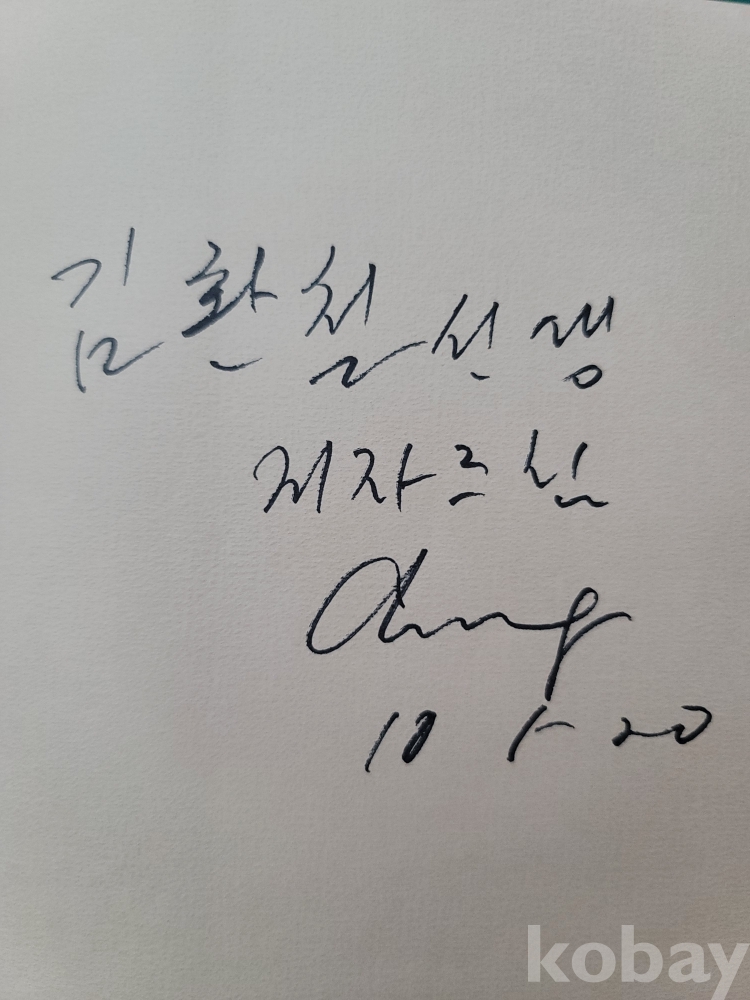 김환철 선생
저자 드림
10 1- 20
kobay